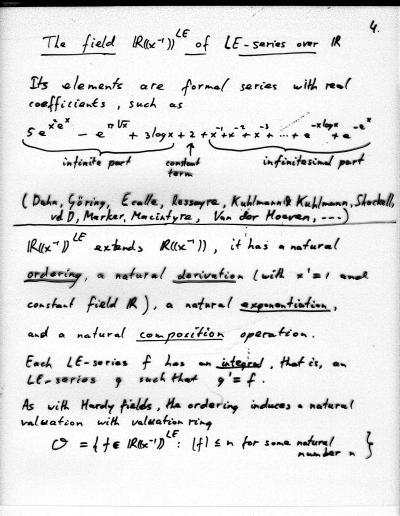 4.
The field ℝ((x⁻¹))ᴸᴱ of LE-series over ℝ
Its elements are formal series with real
coefficients, such as
5e^{x²e^x} − e^{π√x} + 3logx + 2 + x⁻¹+x⁻²+x⁻³+...+e^{-xlogx}+e^{-e^x}
infinite part constant term infinitesimal part
(Dahn, Göring, Ecalle, Ressayre, Kuhlmann & Kuhlmann, Shackell,
vdD, Marker, Macintyre, Van der Hoeven, ---)
ℝ((x⁻¹))ᴸᴱ extends ℝ((x⁻¹)), it has a natural
ordering, a natural derivation (with x'=1 and
constant field ℝ), a natural exponentiation,
and a natural composition operation.
Each LE-series f has an integral, that is, an
LE-series g such that g'=f.
As with Hardy fields, the ordering induces a natural
valuation with valuation ring
O = { f ∈ ℝ((x⁻¹))ᴸᴱ : |f| ≤ n for some natural
number n }